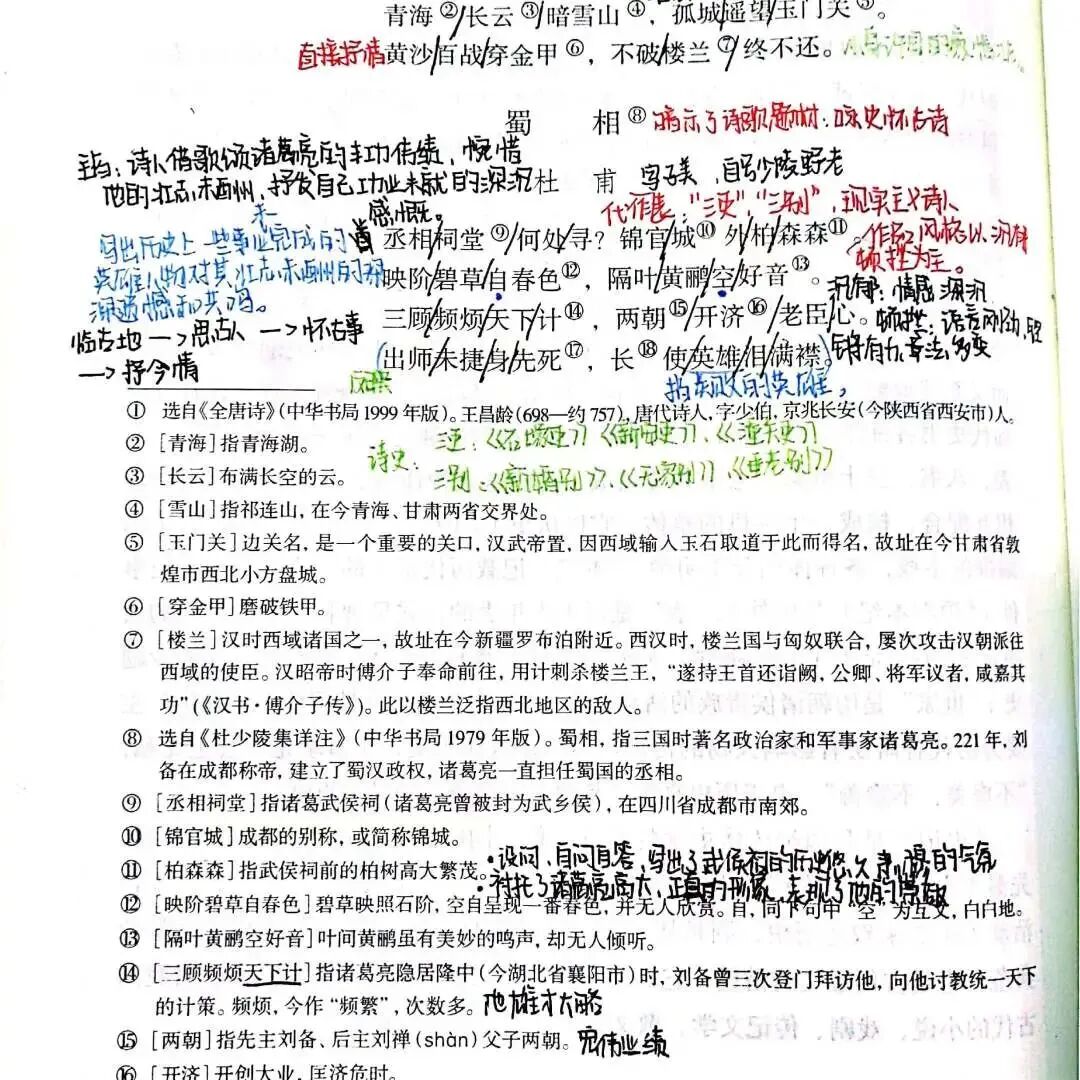 青海②/长云③/暗雪山④，孤城/遥望/玉门关⑤。
直接抒情 黄沙/百战/穿金甲⑥，不破/楼兰⑦/终不还。
蜀 相⑧ 暗示了诗歌题材：咏史怀古诗
主旨：诗人借歌颂诸葛亮的丰功伟绩，惋惜
他的壮志未酬，抒发自己功业未就的深沉
感慨。
杜 甫 字子美，自号少陵野老
代作表："三吏"，"三别"，现实主义诗人
作品风格以沉郁
顿挫为主。
未
写出历史上一些事业完成的
英雄人物对其壮志未酬的深
深遗憾和共鸣。
丞相/祠堂⑨/何处/寻？锦官/城⑩外/柏/森森⑪。
映阶/碧草/自春色⑫，隔叶/黄鹂/空/好音⑬。
三顾/频烦/天下/计⑭，两朝⑮/开济⑯/老臣/心。
出师/未捷/身/先死⑰，长⑱使/英雄/泪/满襟。
沉郁：情感深沉
顿挫：语言
铿锵有力，章法多变
临古地→思古人→怀古事
→抒今情
指失败的英雄，
① 选自《全唐诗》（中华书局1999年版）。王昌龄（698—约757），唐代诗人，字少伯，京兆长安（今陕西省西安市）人。
② [青海]指青海湖。
诗史：三吏：《石壕吏》《新安吏》、《潼关吏》
三别：《新婚别》、《无家别》、《垂老别》
③ [长云]布满长空的云。
④ [雪山]指祁连山，在今青海、甘肃两省交界处。
⑤ [玉门关]边关名，是一个重要的关口，汉武帝置，因西域输入玉石取道于此而得名，故址在今甘肃省敦
煌市西北小方盘城。
⑥ [穿金甲]磨破铁甲。
⑦ [楼兰]汉时西域诸国之一，故址在今新疆罗布泊附近。西汉时，楼兰国与匈奴联合，屡次攻击汉朝派往
西域的使臣。汉昭帝时傅介子奉命前往，用计刺杀楼兰王，“遂持王首还诣阙，公卿、将军议者，咸嘉其
功”（《汉书·傅介子传》）。此以楼兰泛指西北地区的敌人。
⑧ 选自《杜少陵集详注》（中华书局1979年版）。蜀相，指三国时著名政治家和军事家诸葛亮。221年，刘
备在成都称帝，建立了蜀汉政权，诸葛亮一直担任蜀国的丞相。
⑨ [丞相祠堂]指诸葛武侯祠（诸葛亮曾被封为武乡侯），在四川省成都市南郊。
⑩ [锦官城]成都的别称，或简称锦城。
⑪ [柏森森]指武侯祠前的柏树高大繁茂。
•设问，自问自答，写出了武侯祠的历史悠久，肃穆的气氛
•衬托了诸葛亮高大、正直的形象，表现了他的
⑫ [映阶碧草自春色]碧草映照石阶，空自呈现一番春色，并无人欣赏。自，同下句中“空”为互文，白白地。
⑬ [隔叶黄鹂空好音]叶间黄鹂虽有美妙的鸣声，却无人倾听。
⑭ [三顾频烦天下计]指诸葛亮隐居隆中（今湖北省襄阳市）时，刘备曾三次登门拜访他，向他讨教统一天下
的计策。频烦，今作“频繁”，次数多。 他雄才大略
⑮ [两朝]指先主刘备、后主刘禅（shàn）父子两朝。 宏伟业绩
⑯ [开济]开创大业，匡济危时。